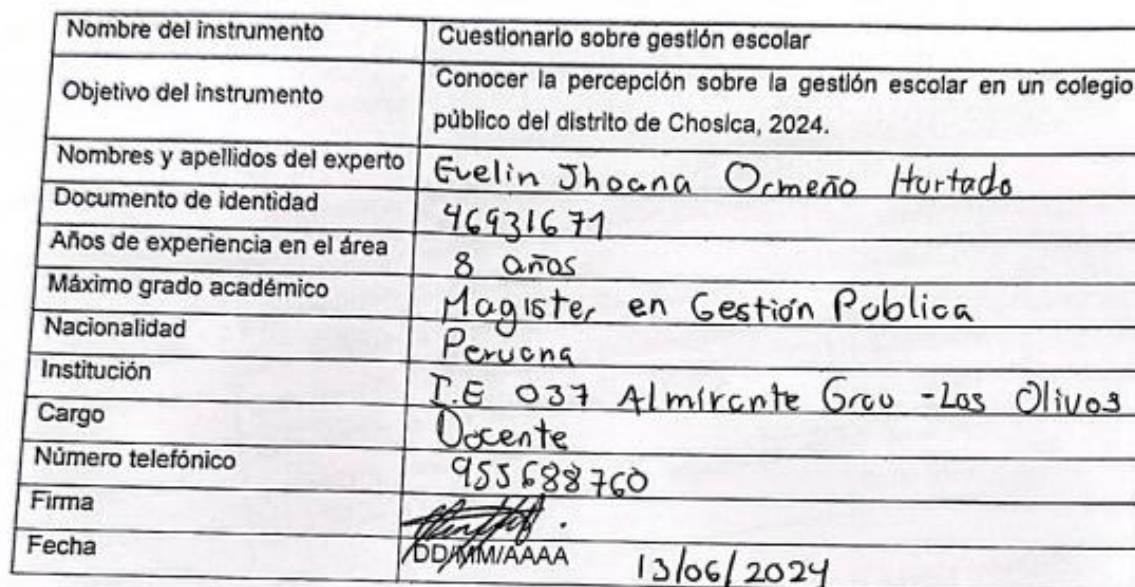 Nombre del instrumento Cuestionario sobre gestión escolar
Objetivo del instrumento Conocer la percepción sobre la gestión escolar en un colegio
público del distrito de Chosica, 2024.
Nombres y apellidos del experto Evelin Jhoana Ormeño Hurtado
Documento de identidad 46931671
Años de experiencia en el área 8 años
Máximo grado académico Magister en Gestión Poblica
Nacionalidad Peruana
Institución I.E 037 Almirante Grau - Los Olivos
Cargo Docente
Número telefónico 955688760
Firma
Fecha DD/MM/AAAA 13/06/2024